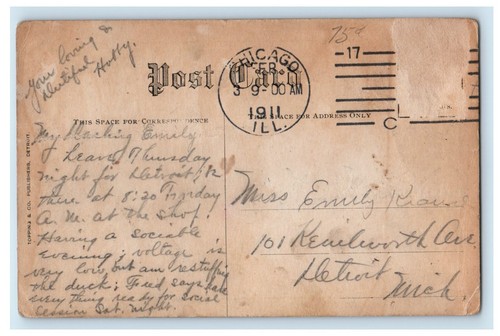 Your loving &
dutiful Hubby.
75¢
Post Card
CHICAGO
FEB
3 9-00 AM
1911
ILL.
17
C
THIS SPACE FOR CORRESPONDENCE
THE SPACE FOR ADDRESS ONLY
TOPPING & CO. PUBLISHERS, DETROIT
My Darling Emily
Leave Thursday
night for Detroit,
there at 8:20 Friday
A. M. at the Shop.
Having a sociable
evening; voltage is
very low, but am
the duck; Fred says
every thing ready for social
session Sat. night.
Miss Emily
101 Kenilworth Ave
Detroit
Mich.